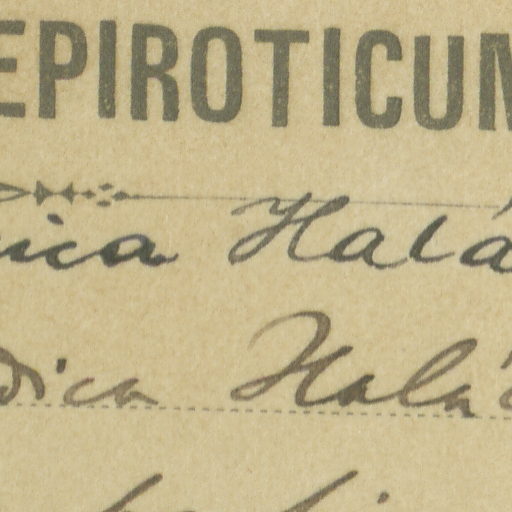 EPIROTICUM
ica Halá
dica Halá